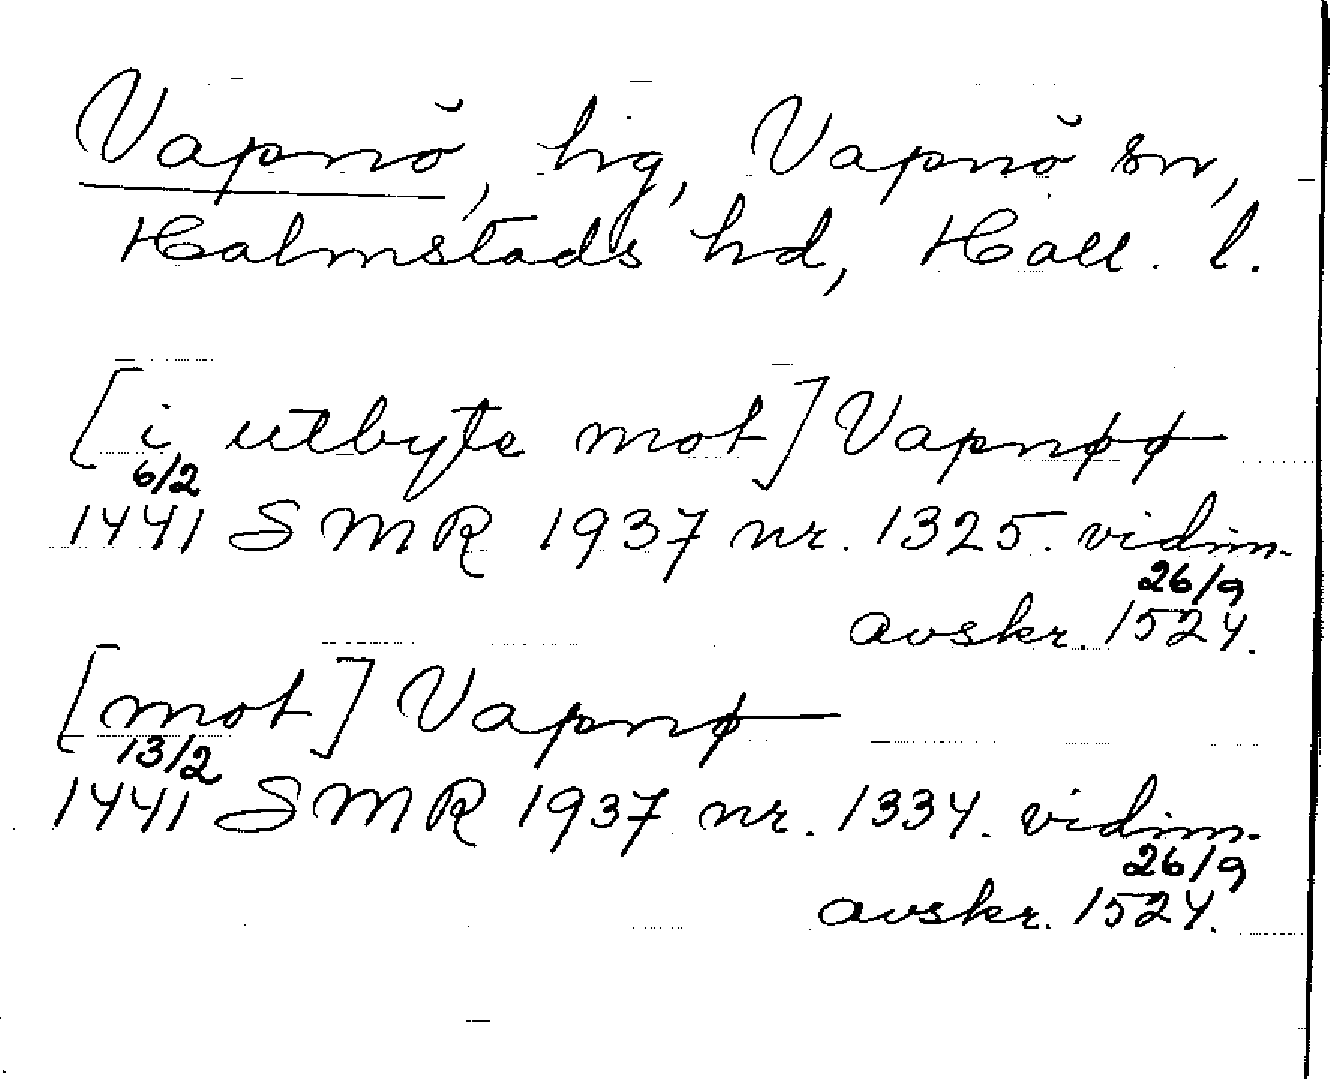 Vapnö, hg, Vapnö sn,
Halmstads hd, Hall. l.
[i utbyte mot] Vapnøø
6/2
1441 SMR 1937 nr. 1325. vidim.
26/9
avskr. 1524.
[mot] Vapnø
13/2
1441 SMR 1937 nr. 1334. vidim.
26/9
avskr. 1524.